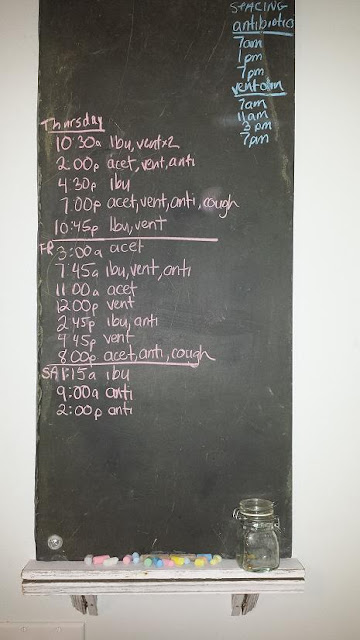 SPACING
antibiotic
7am
1pm
7pm
ventolin
7am
11am
3pm
7pm
Thursday
10:30a Ibu, vent x2
2:00p acet, vent, anti
4:30p Ibu
7:00p acet, vent, anti, cough
10:45p Ibu, vent
FR 3:00a acet
7:45a Ibu, vent, anti
11:00a acet
12:00p vent
2:45p Ibu, anti
4:45p vent
8:00p acet, anti, cough
SA 1:15a Ibu
9:00a anti
2:00p anti